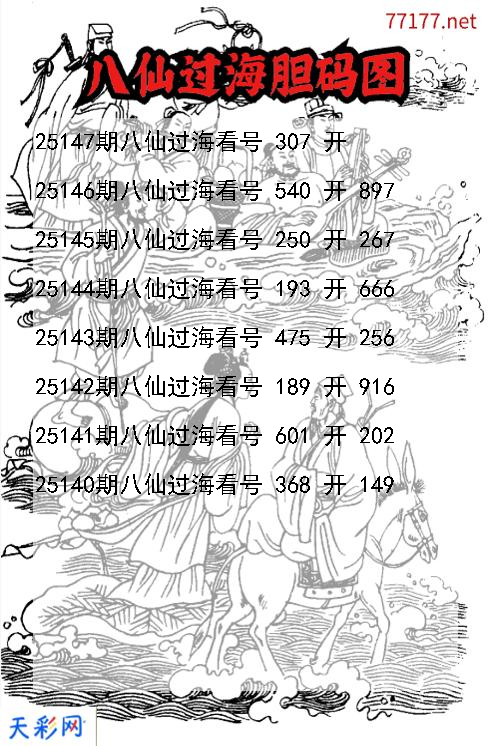 77177.net
八仙过海胆码图
25147期八仙过海看号 307 开
25146期八仙过海看号 540 开 897
25145期八仙过海看号 250 开 267
25144期八仙过海看号 193 开 666
25143期八仙过海看号 475 开 256
25142期八仙过海看号 189 开 916
25141期八仙过海看号 601 开 202
25140期八仙过海看号 368 开 149
天彩网